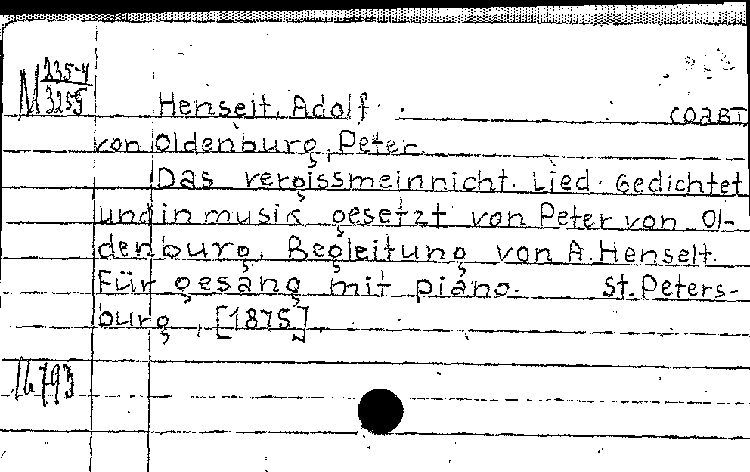 M 235-4
3255
Henselt, Adolf. соавт
von Oldenburg, Peter
Das vergissmeinnicht. Lied. Gedichtet
und in musik gesetzt von Peter von Ol-
denburg. Begleitung von A. Henselt.
Für gesang mit piano. St. Peters-
burg, [1875]
16793